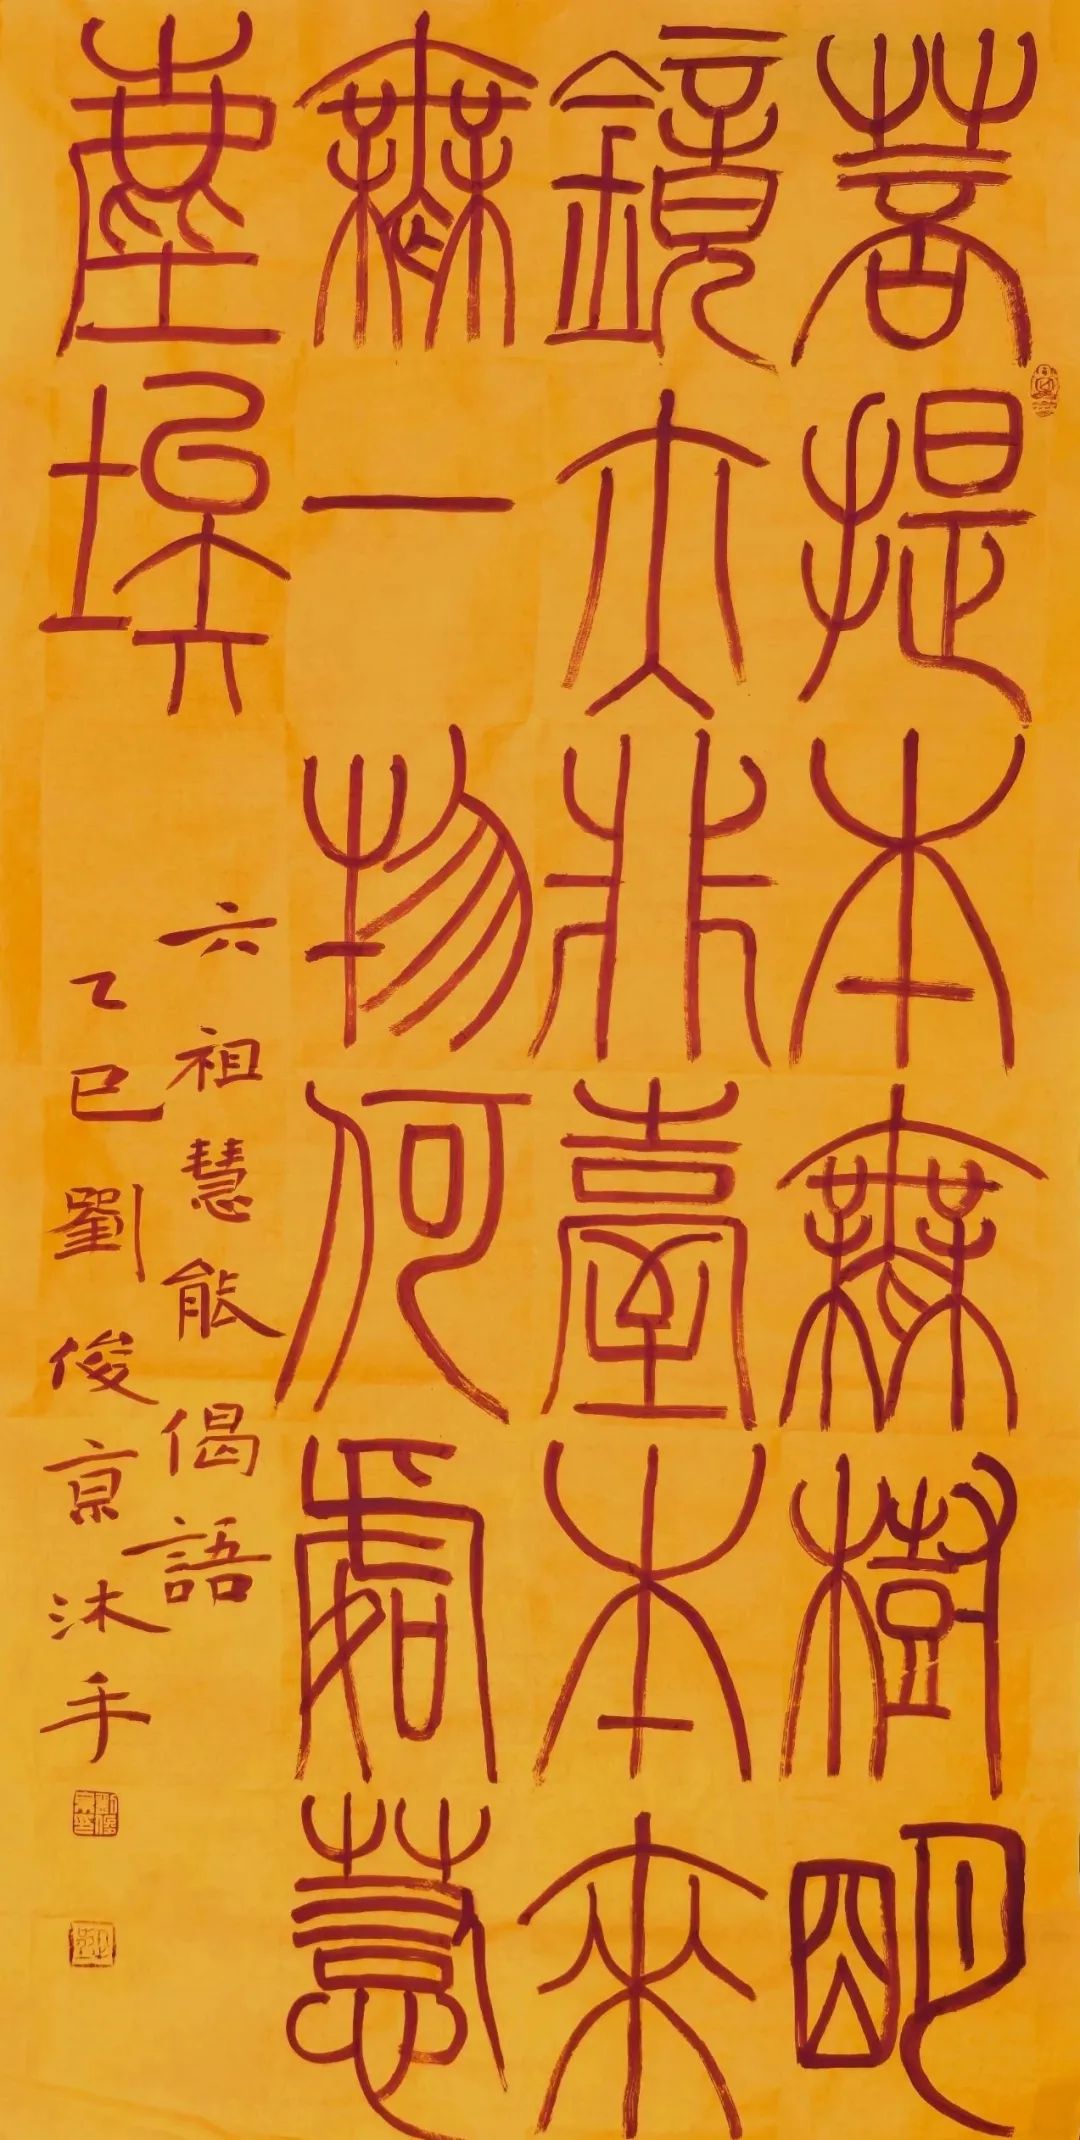 菩提本無樹明
鏡亦非臺本來
無一物何處惹
塵埃
六祖慧能偈語
乙巳劉俊京沐手